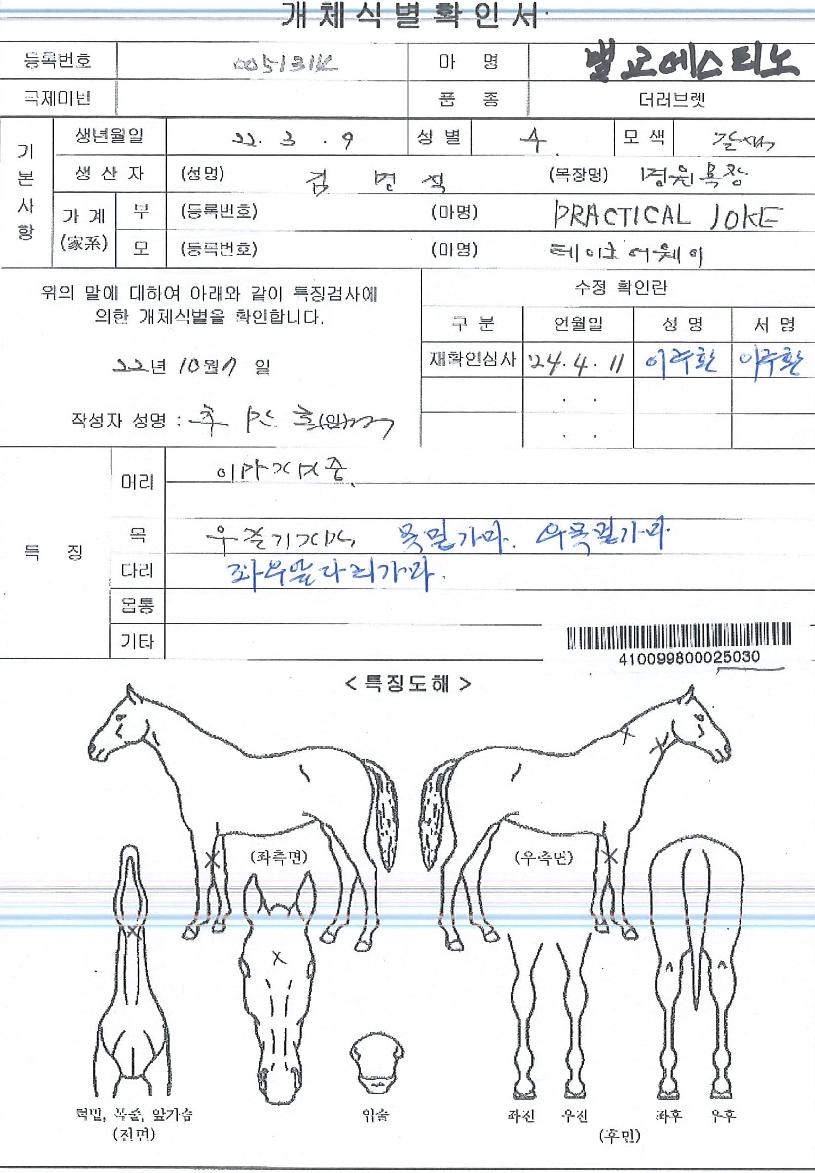 개체식별확인서
등록번호 0051314 마 명 벨교에스티노
국제마번 품 종 더러브렛
기본사항
생년월일 22. 3. 9 성별 수 모색 갈색
생산자 (성명) (목장명)
가계(家系) 부 (등록번호) (마명) PRACTICAL JOKE
모 (등록번호) (마명) 테이크어웨이
위의 말에 대하여 아래와 같이 특징검사에
의한 개체식별을 확인합니다.
22년 10월 7 일
작성자 성명 : (인)
수정 확인란
구 분 연월일 성 명 서 명
재확인심사 '24. 4. 11 이주환 이주환
. .
. .
특 징
머리
목 목밑가마. 우목밑가마
다리 좌우앞다리가마.
몸통
기타
410099800025030
< 특징도해 >
(좌측면) (우측면)
턱밑, 목줄, 앞가슴 입술 좌진 우진 좌후 우후
(전면) (후면)